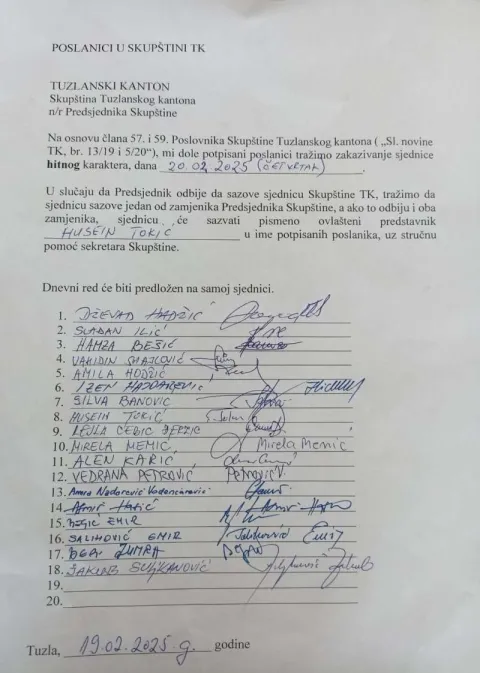 POSLANICI U SKUPŠTINI TK
TUZLANSKI KANTON
Skupština Tuzlanskog kantona
n/r Predsjednika Skupštine
Na osnovu člana 57. i 59. Poslovnika Skupštine Tuzlanskog kantona ( „Sl. novine
TK, br. 13/19 i 5/20“), mi dole potpisani poslanici tražimo zakazivanje sjednice
hitnog karaktera, dana 20.02.2025 (ČETVRTAK).
U slučaju da Predsjednik odbije da sazove sjednicu Skupštine TK, tražimo da
sjednicu sazove jedan od zamjenika Predsjednika Skupštine, a ako to odbiju i oba
zamjenika, sjednicu će sazvati pismeno ovlašteni predstavnik
HUSEIN TOKIĆ u ime potpisanih poslanika, uz stručnu
pomoć sekretara Skupštine.
Dnevni red će biti predložen na samoj sjednici.
1. DŽEVAD HADŽIĆ
2. SLAĐAN ILIĆ
3. HAMZA BEŠIĆ
4. VAHIDIN
5. AMILA HODŽIĆ
6.
7. SILVA BANOVIĆ
8. HUSEIN TOKIĆ
9. LEJLA
10. MIRELA MEMIĆ, Mirela Memić
11. ALEN KARIĆ
12. VEDRANA PETROVIĆ Petrović V
13. Amra Nadarević
14.
15. EMIR
16. SALIHOVIĆ EMIR
17. ZUMRA
18. JAKUB SULJKANOVIĆ
19.
20.
Tuzla, 19.02.2025.g. godine